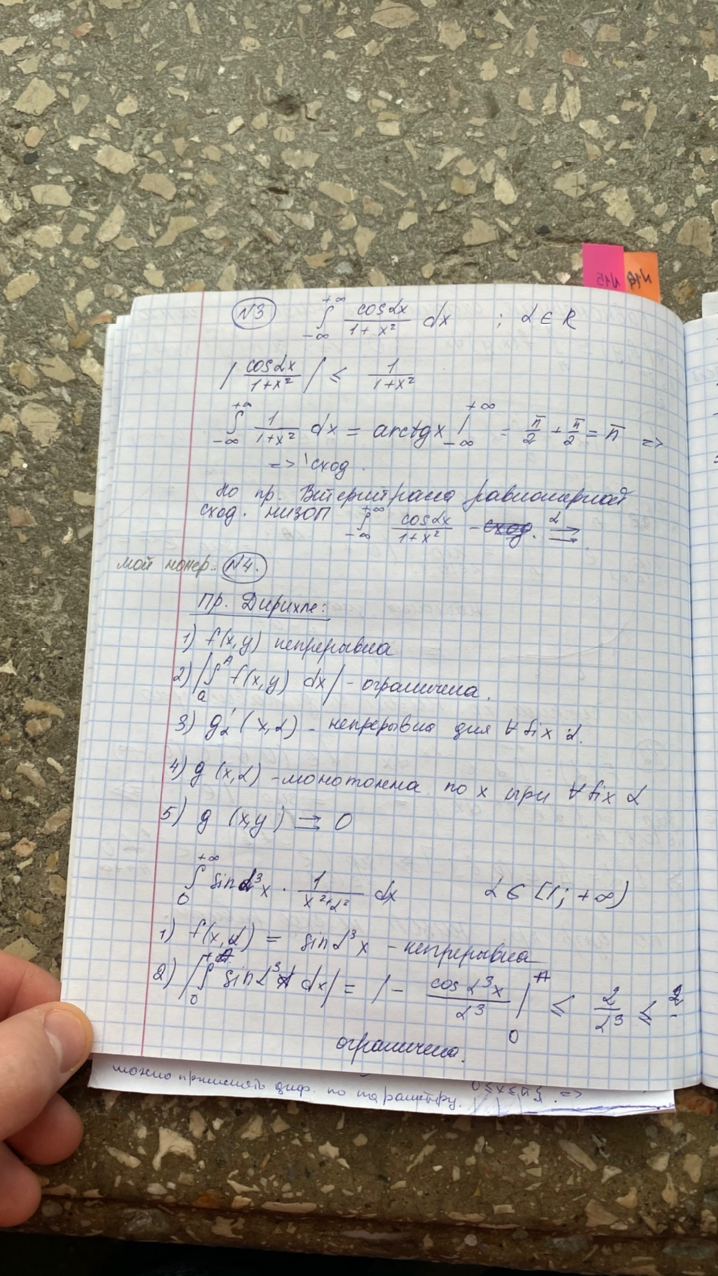 N3 ∫_{-∞}^{+∞} cosαx / (1+x²) dx ; α ∈ R
| cosαx / (1+x²) | ≤ 1 / (1+x²)
∫_{-∞}^{+∞} 1 / (1+x²) dx = arctgx |_{-∞}^{+∞} = π/2 + π/2 = π =>
=> сход.
По пр. Вейерштрасса равномерной
сход. НИЗОП ∫_{-∞}^{+∞} cosαx / (1+x²) - сход. ⇉^α
мой номер.. N4.
Пр. Дирихле:
1) f(x,y) непрерывна
2) |∫_a^A f(x,y) dx| - ограничена.
3) g'_α (x,α) - непрерывна для ∀ fix α.
4) g (x,α) - монотонна по x при ∀ fix α
5) g (x,y) ⇉ 0
∫_0^{+∞} sinα³x · 1 / (x²+α²) dx α ∈ [1; +∞)
1) f(x,α) = sinα³x - непрерывна
2) |∫_0^A sinα³x dx| = |- cosα³x / α³ |_0^A ≤ 2/α³ ≤ 2 -
ограничено.
можно применять диф. по параметру.
N15